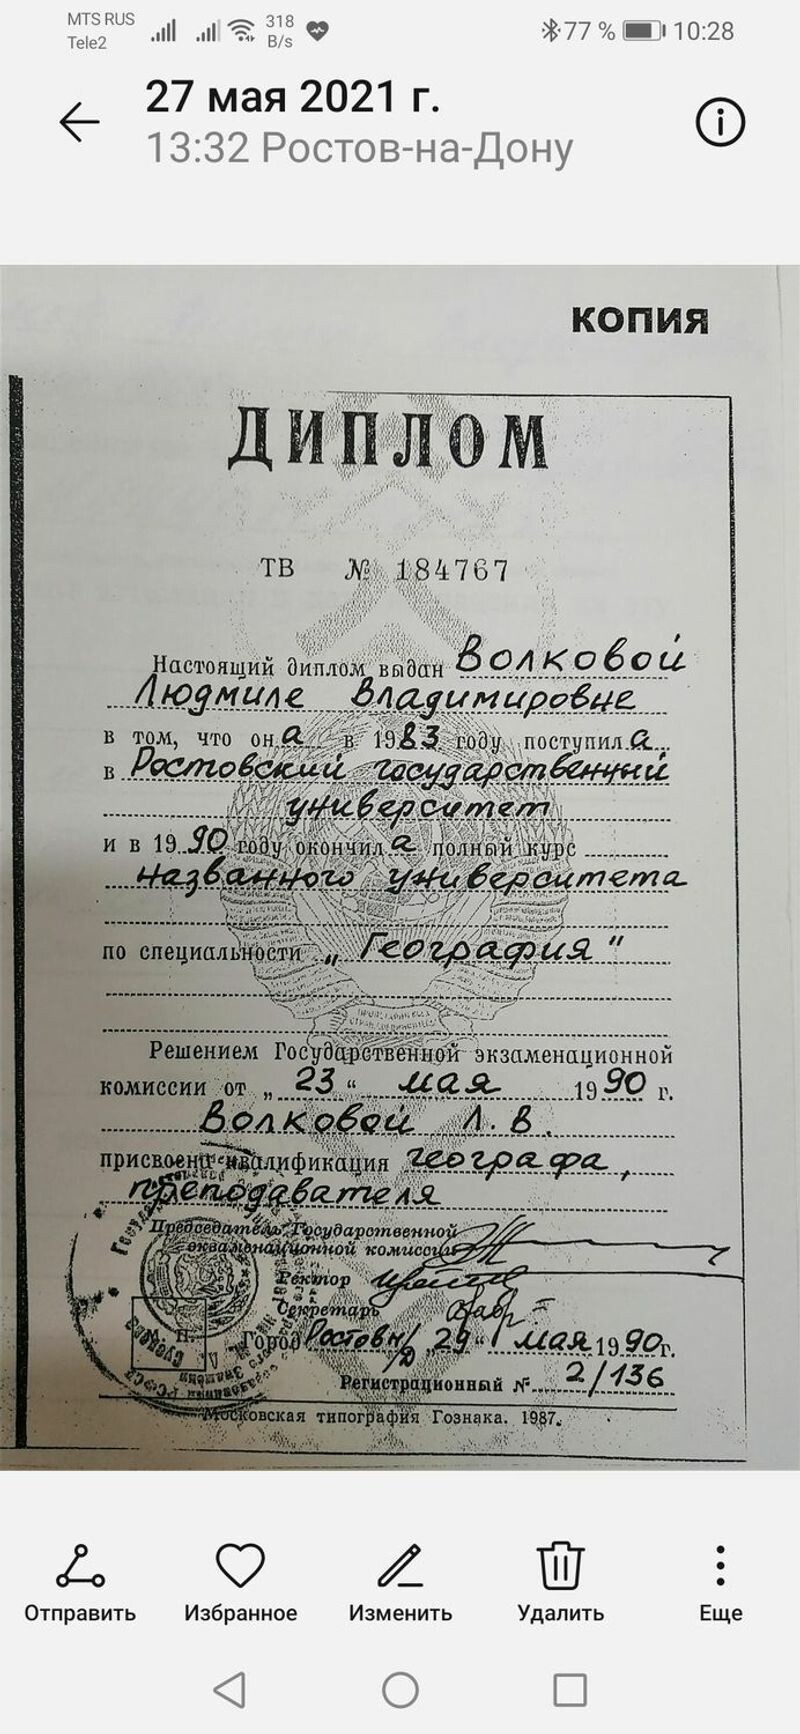 MTS RUS
Tele2
318
B/s
77 %
10:28
27 мая 2021 г.
13:32 Ростов-на-Дону
КОПИЯ
ДИПЛОМ
ТВ № 184767
Настоящий диплом выдан Волковой
Людмиле Владимировне
в том, что она в 1983 году поступила
в Ростовский государственный
университет
и в 1990 году окончила полный курс
названного университета
по специальности „География"
Решением Государственной экзаменационной
комиссии от „23" мая 1990 г.
Волковой Л. В.
присвоена квалификация географа,
преподавателя
Председатель Государственной
экзаменационной комиссии
Ректор
Секретарь
Город Ростов н/Д „29" мая 1990г.
Регистрационный № 2/136
Московская типография Гознака. 1987.
Отправить
Избранное
Изменить
Удалить
Еще